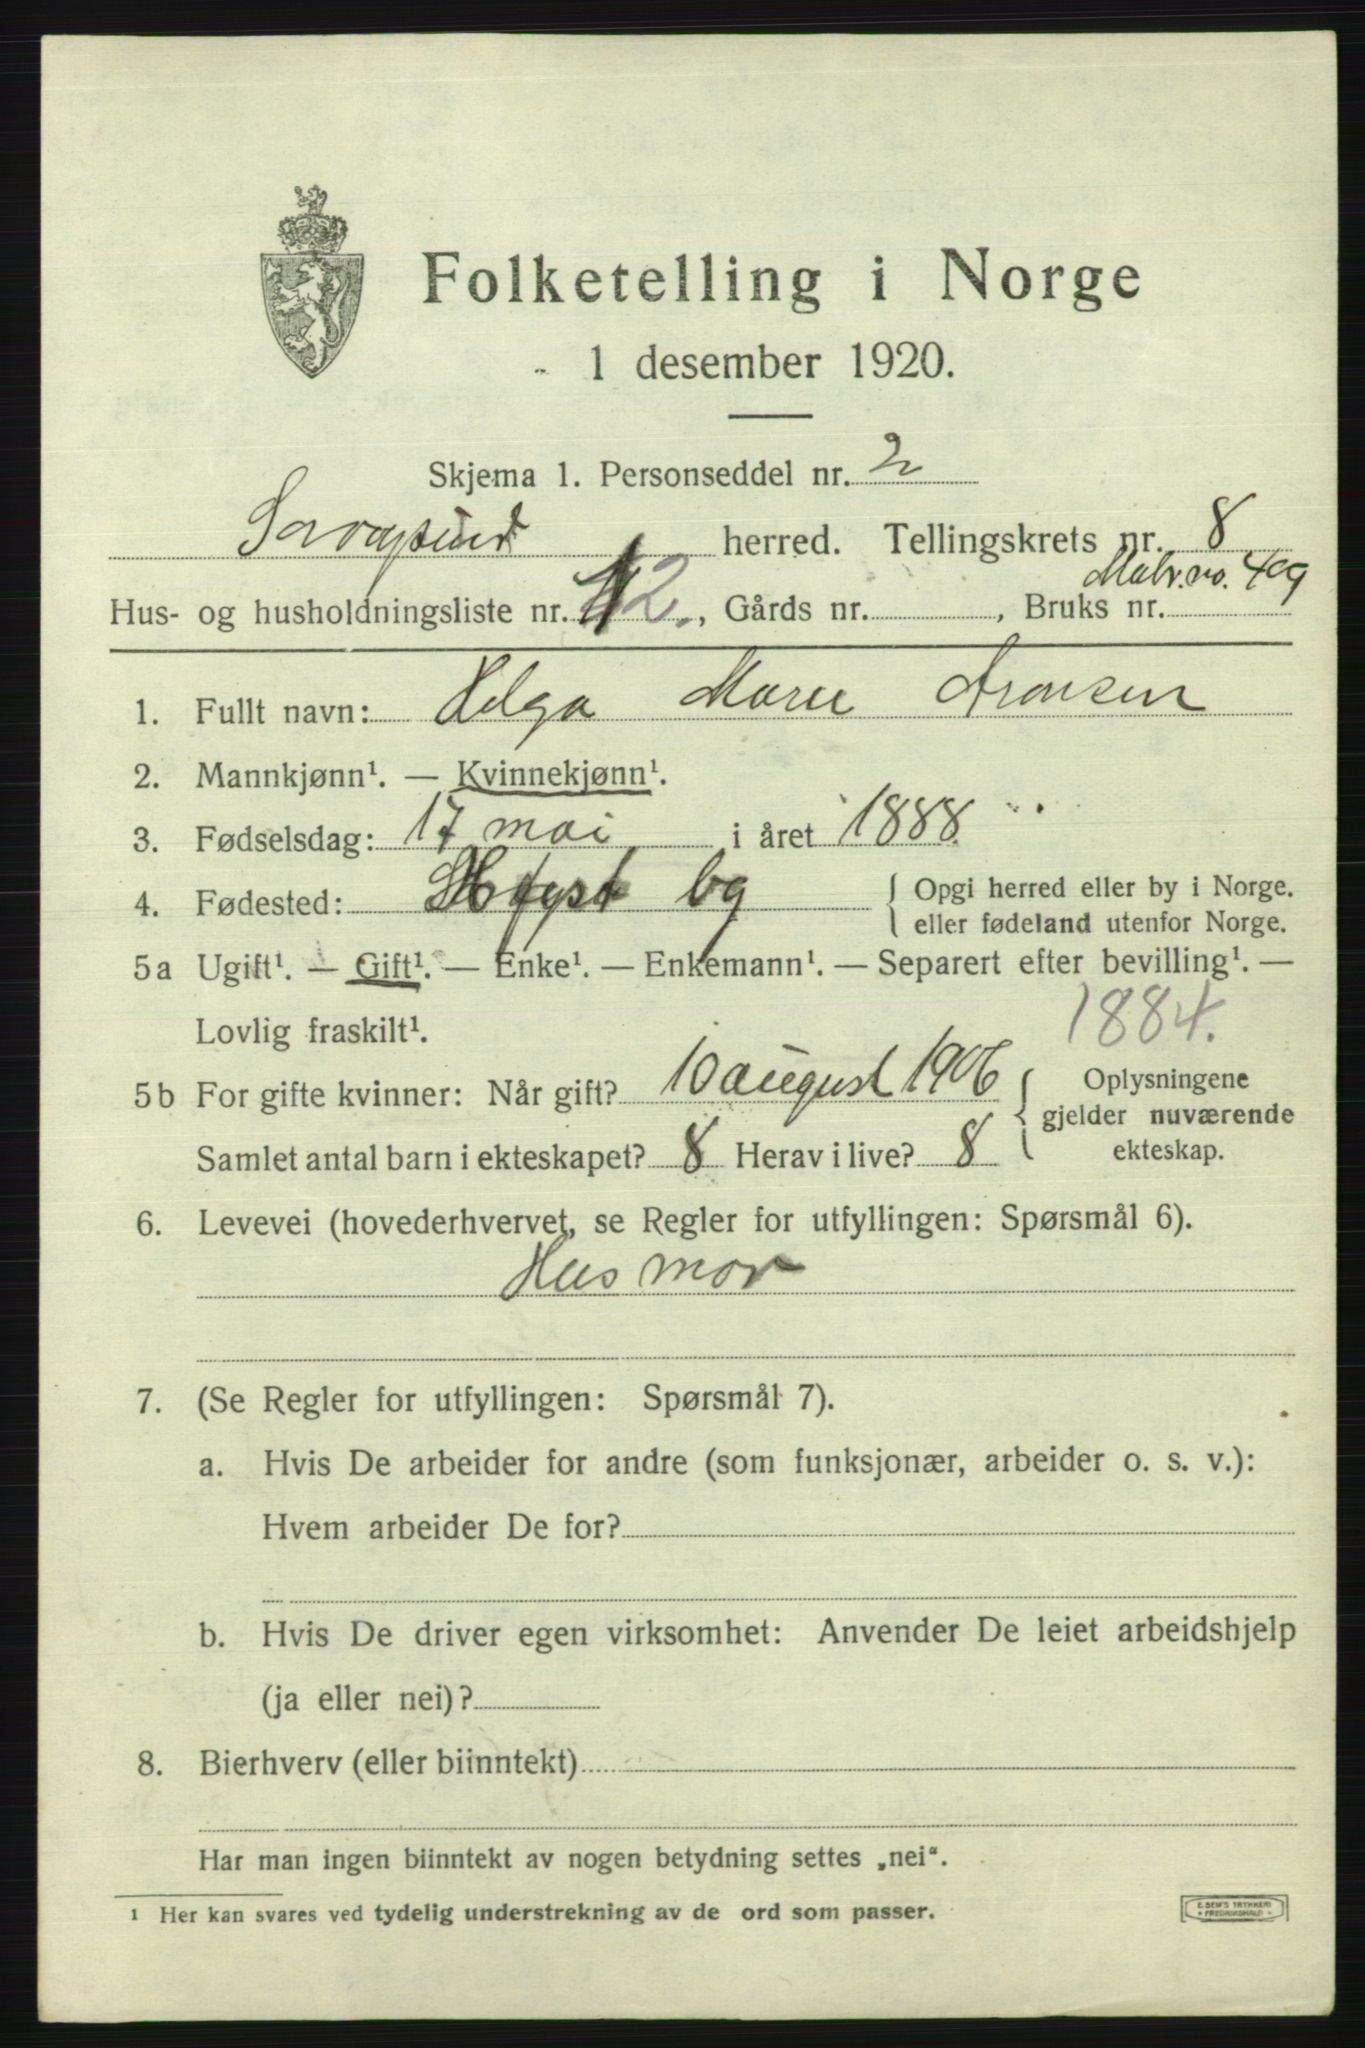 Folketelling i Norge
1 desember 1920.
Skjema 1. Personseddel nr. 2
Sørøysund herred. Tellingskrets nr. 8
Matr. no. 409
Hus- og husholdningsliste nr. 12., Gårds nr. , Bruks nr.
1. Fullt navn: Helga Marie Aronsen
2. Mannkjønn¹. — Kvinnekjønn¹.
3. Fødselsdag: 17 mai i året 1888.
4. Fødested: by { Opgi herred eller by i Norge.
eller fødeland utenfor Norge.
5a Ugift¹. — Gift¹. — Enke¹. — Enkemann¹. — Separert efter bevilling¹. —
Lovlig fraskilt¹. 1884.
5b For gifte kvinner: Når gift? 10 august 1906 { Oplysningene
gjelder nuværende
Samlet antal barn i ekteskapet? 8 Herav i live? 8 ekteskap.
6. Levevei (hovederhvervet, se Regler for utfyllingen: Spørsmål 6).
Husmor
7. (Se Regler for utfyllingen: Spørsmål 7).
a. Hvis De arbeider for andre (som funksjonær, arbeider o. s. v.):
Hvem arbeider De for?
b. Hvis De driver egen virksomhet: Anvender De leiet arbeidshjelp
(ja eller nei)?
8. Bierhverv (eller biinntekt)
Har man ingen biinntekt av nogen betydning settes „nei“.
¹ Her kan svares ved tydelig understrekning av de ord som passer.
E. SEM'S TRYKKERI
FREDRIKSHALD